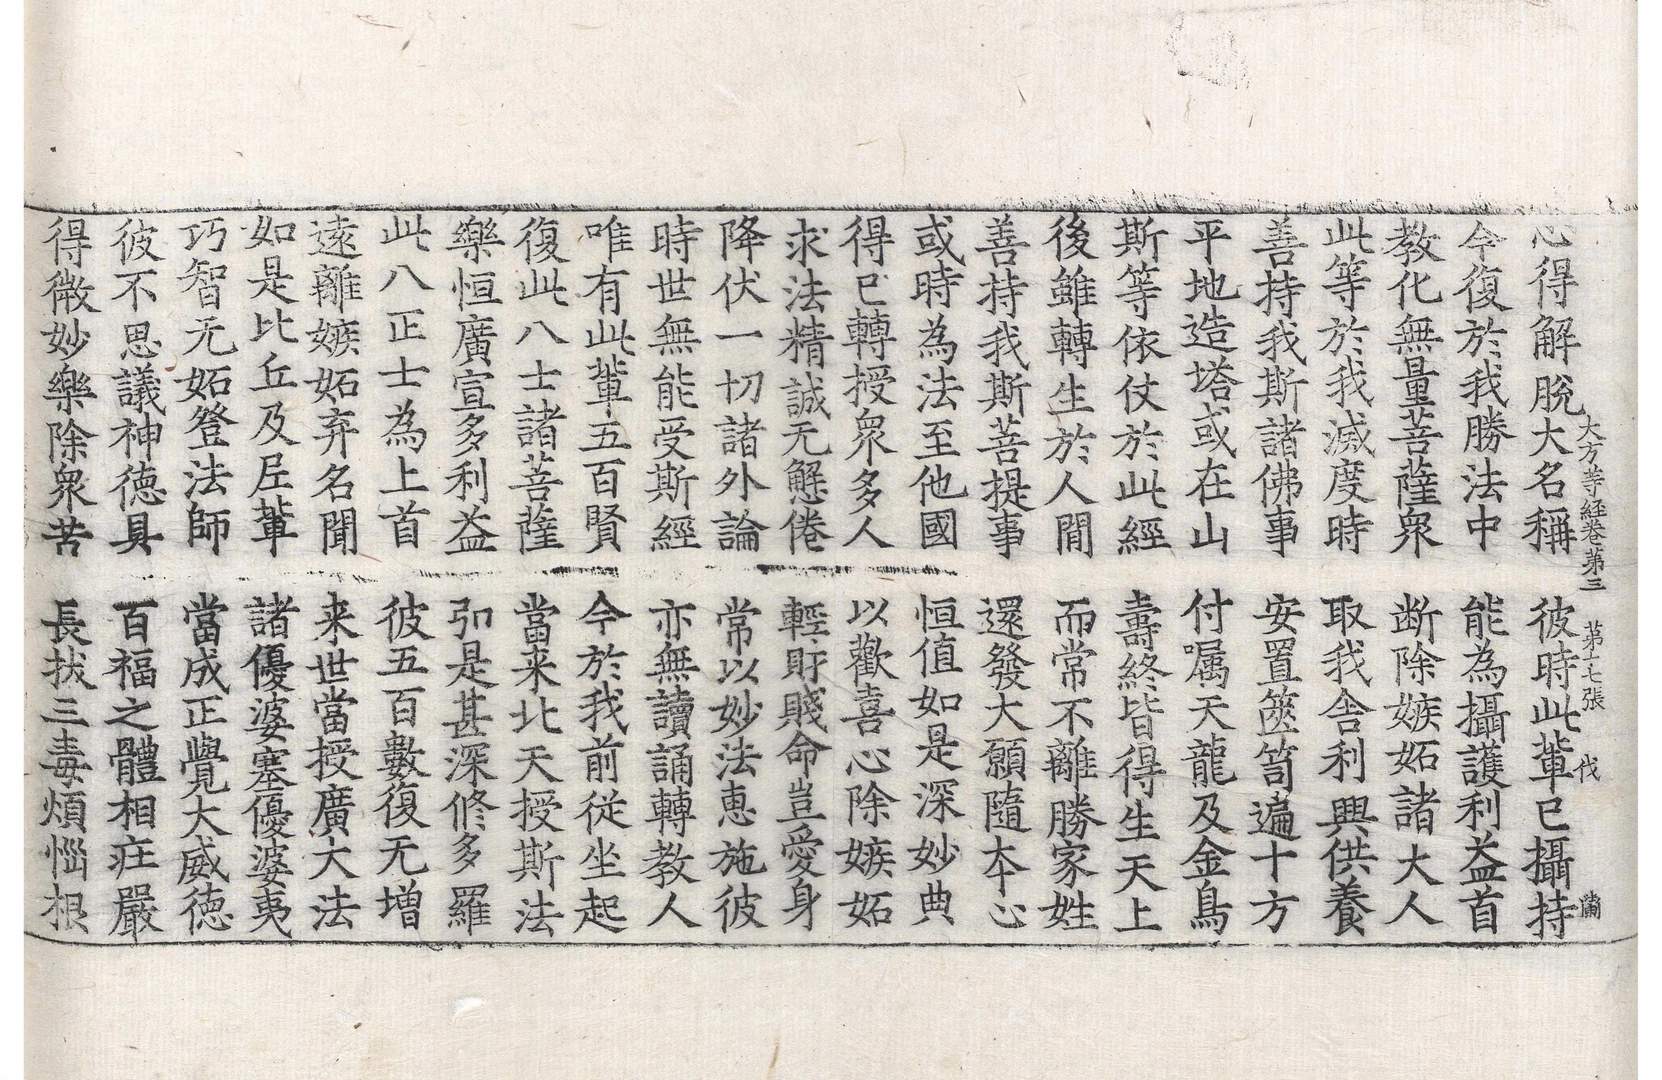 大方等経卷第三 第十七張 伐 蘭
悉得解脫大名稱 彼時此輩已攝持
今復於我勝法中 能為攝護利益首
教化無量菩薩眾 断除嫉妬諸大人
此等於我滅度時 取我舍利興供養
善持我斯諸佛事 安置篋笥遍十方
平地造塔或在山 付嘱天龍及金鳥
斯等依仗於此經 壽終皆得生天上
後雖轉生於人間 而常不離勝家姓
善持我斯菩提事 還發大願隨本心
或時為法至他國 恒值如是深妙典
得已轉授眾多人 以歡喜心除嫉妬
求法精誠无懈倦 輕財賤命豈愛身
降伏一切諸外論 常以妙法惠施彼
時世無能受斯經 亦無讀誦轉教人
唯有此輩五百賢 今於我前從坐起
復此八士諸菩薩 當来北天授斯法
樂恒廣宣多利益 弘是甚深修多羅
此八正士為上首 彼五百數復无增
遠離嫉妬弃名聞 来世當授廣大法
如是比丘及尼輩 諸優婆塞優婆夷
巧智无妬登法師 當成正覺大威徳
彼不思議神徳具 百福之體相庄嚴
得微妙樂除眾苦 長拔三毒煩惱根